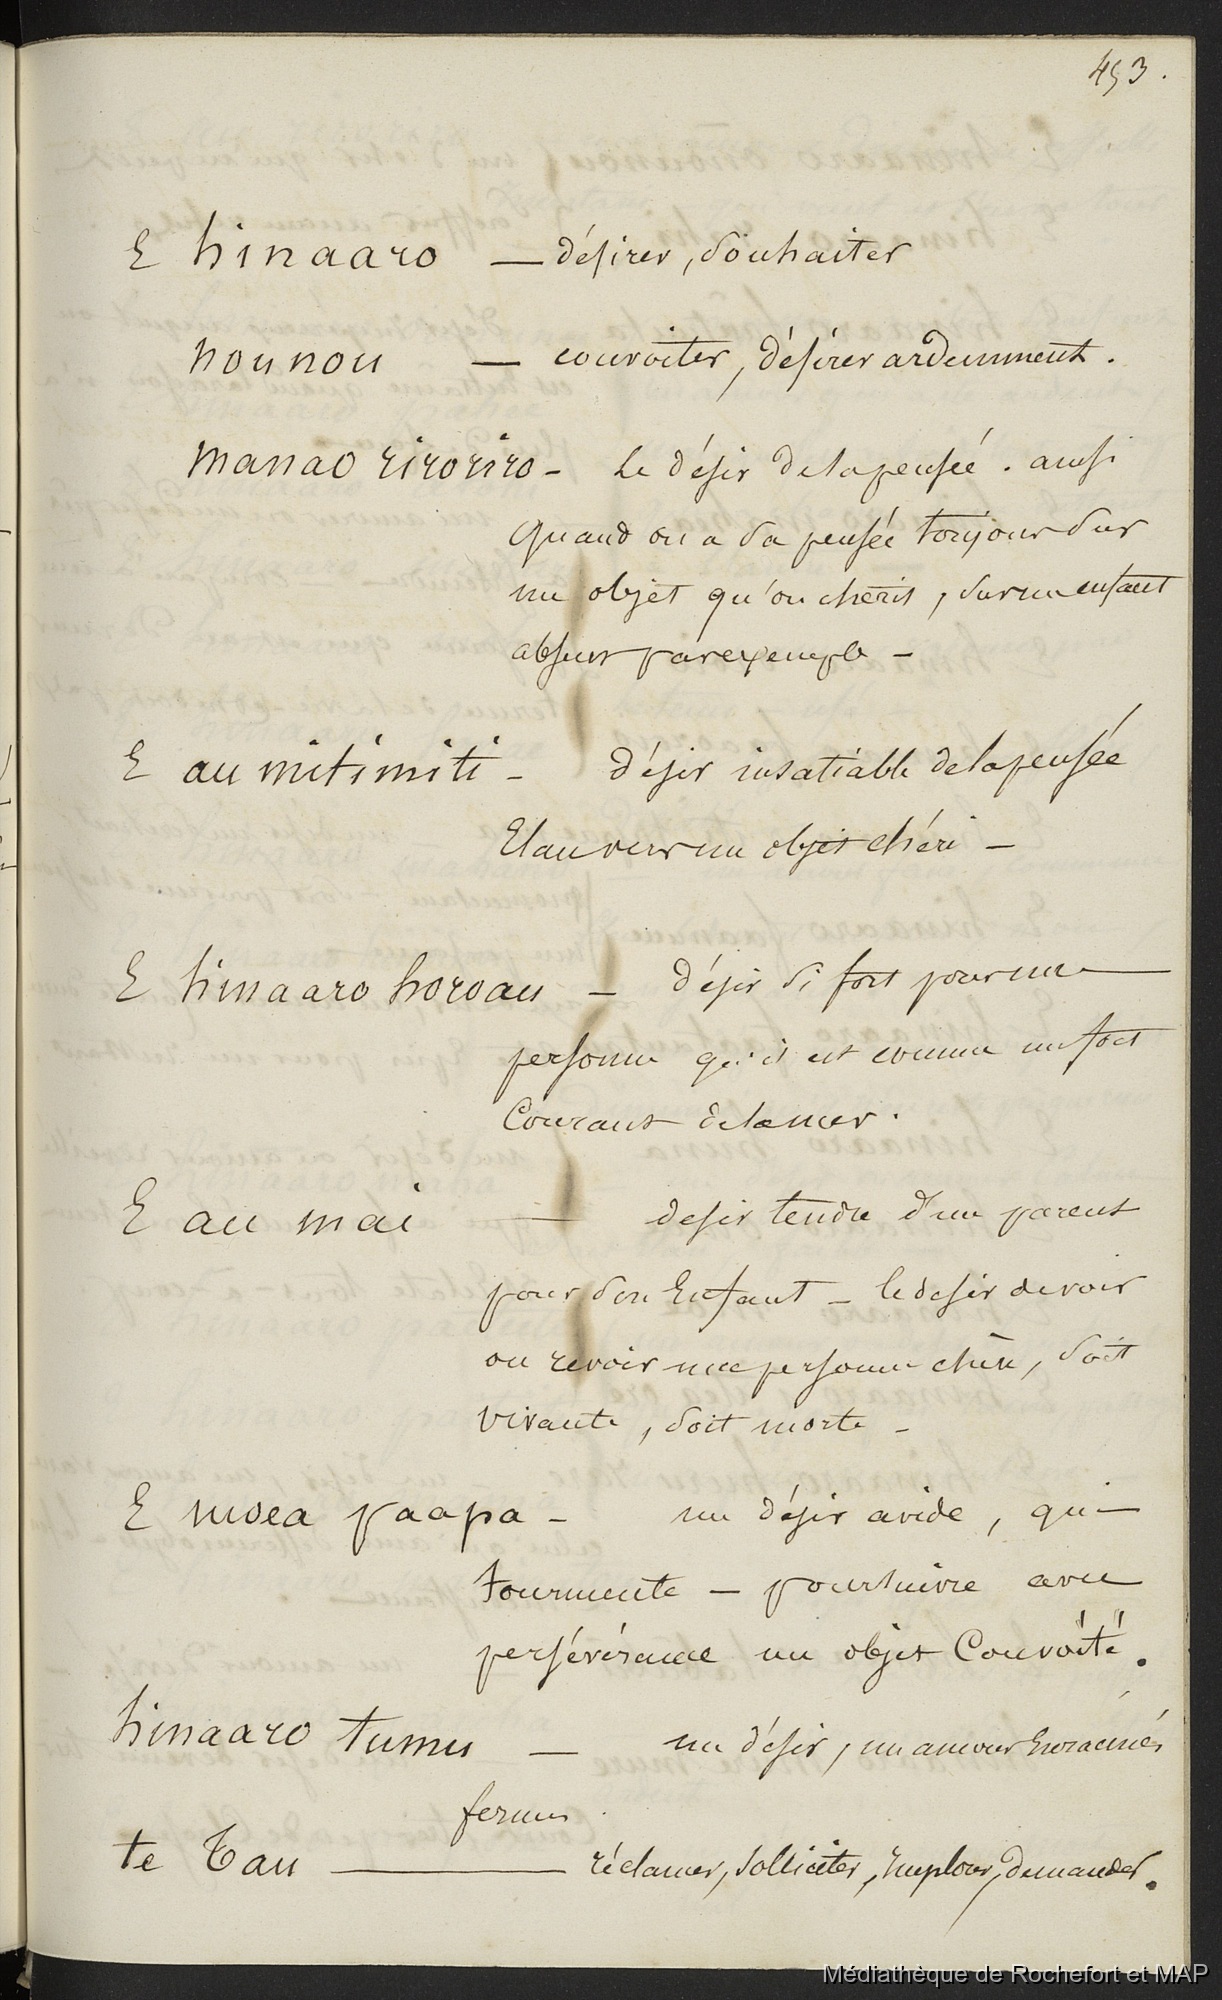 453.
E hinaaro — désirer, souhaiter
nounou — convoiter, désirer ardemment.
manao riroriro - le désir de la pensée. ainsi
quand on a sa pensée toujour sur
un objet qu'on chérit, sur un enfant
absent par exemple -
E au mitimiti - désir insatiable de la pensée
Elan vers un objet chéri -
E hinaaro horoau - désir si fort pour une
personne qu'il est comme un fort
Courant de la mer.
E au mai — desir tendre d'un parent
pour son Enfant - le desir de voir
ou revoir une personne chère, soit
vivante, soit morte -
E moea paapa - un désir avide, qui
tourmente - poursuivre avec
persévérance un objet Convoité.
hinaaro tumu — un désir, un amour Enracinés
fermes
te Tau — réclamer, solliciter, Implorer, demander.
Médiathèque de Rochefort et MAP